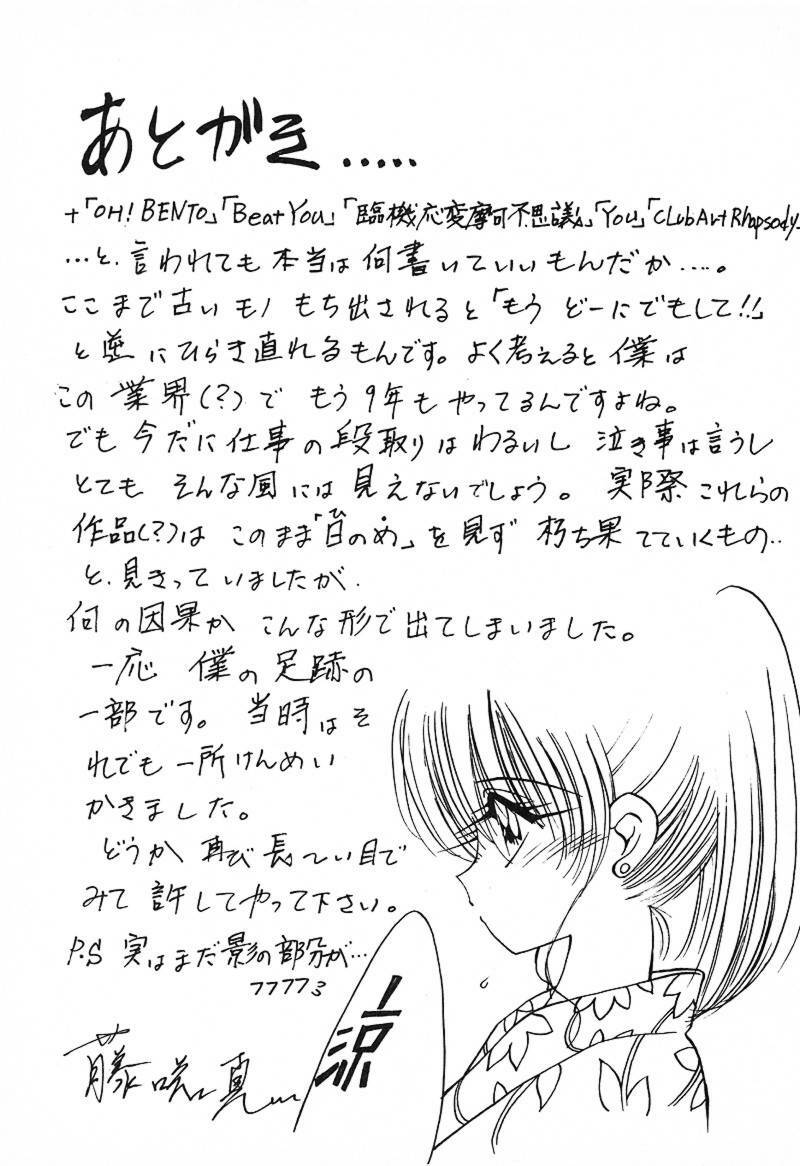 あとがき.....
+「OH! BENTO」「Beat You」「臨機応変摩可不思議」「You」「Club Art Rhapsody」
…と、言われても本当は何書いていいもんだか….。
ここまで古いモノ もち出されると「もう どーにでもして!!」
と逆にひらき直れるもんです。よく考えると僕は
この業界(?)で もう9年もやってるんですよね。
でも今だに仕事の段取りはわるいし 泣き事は言うし
とても そんな風には見えないでしょう。 実際これらの
作品(?)は このまま「日のめ」を見ず 朽ち果てていくもの..
ひ
と、見きっていましたが、
何の因果か こんな形で出てしまいました。
一応 僕の足跡の
一部です。 当時はそ
れでも一所けんめい
かきました。
どうか 再び 長〜い目で
みて 許してやって下さい。
P.S 実はまだ影の部分が…
フフフフ3
藤咲真
涼ー